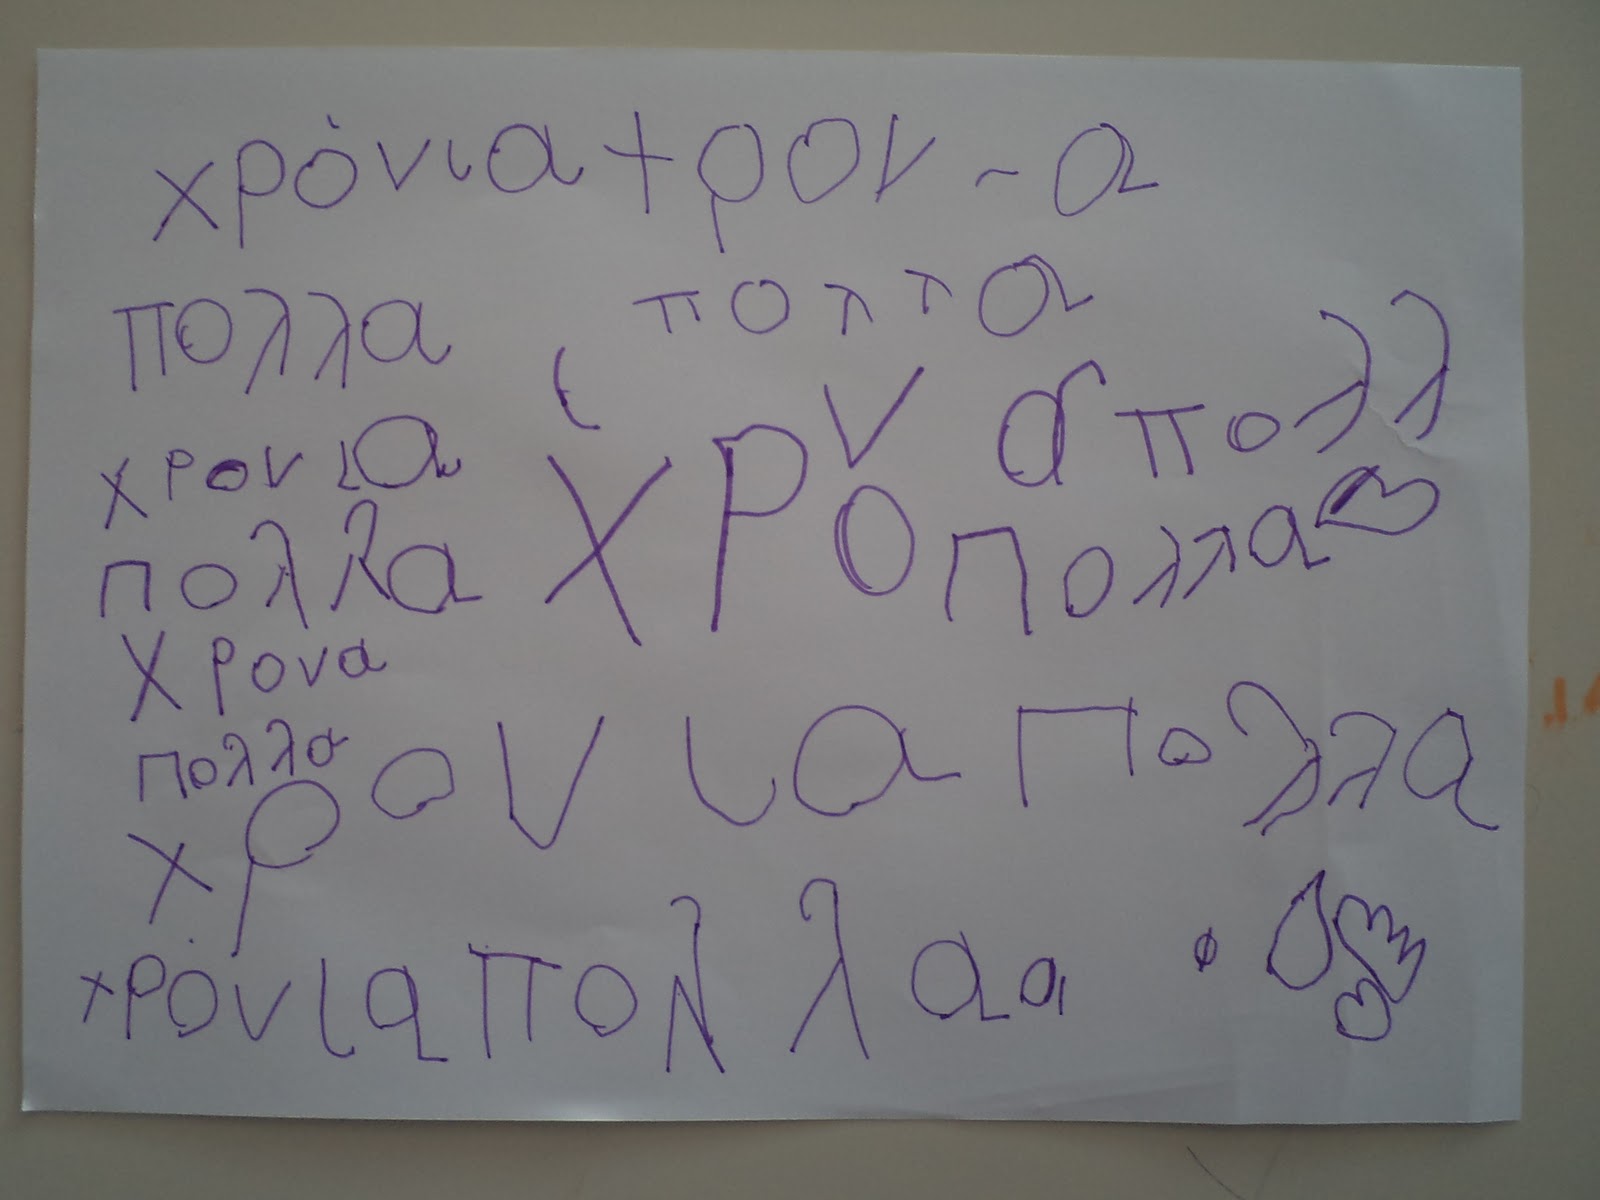 χρόνια χρον-α
πολλα ποττα
χρονια χρονια πολλ
πολλα πολλα
χρονα
πολλα
χρονια πολλα
χρόνια πολλαα